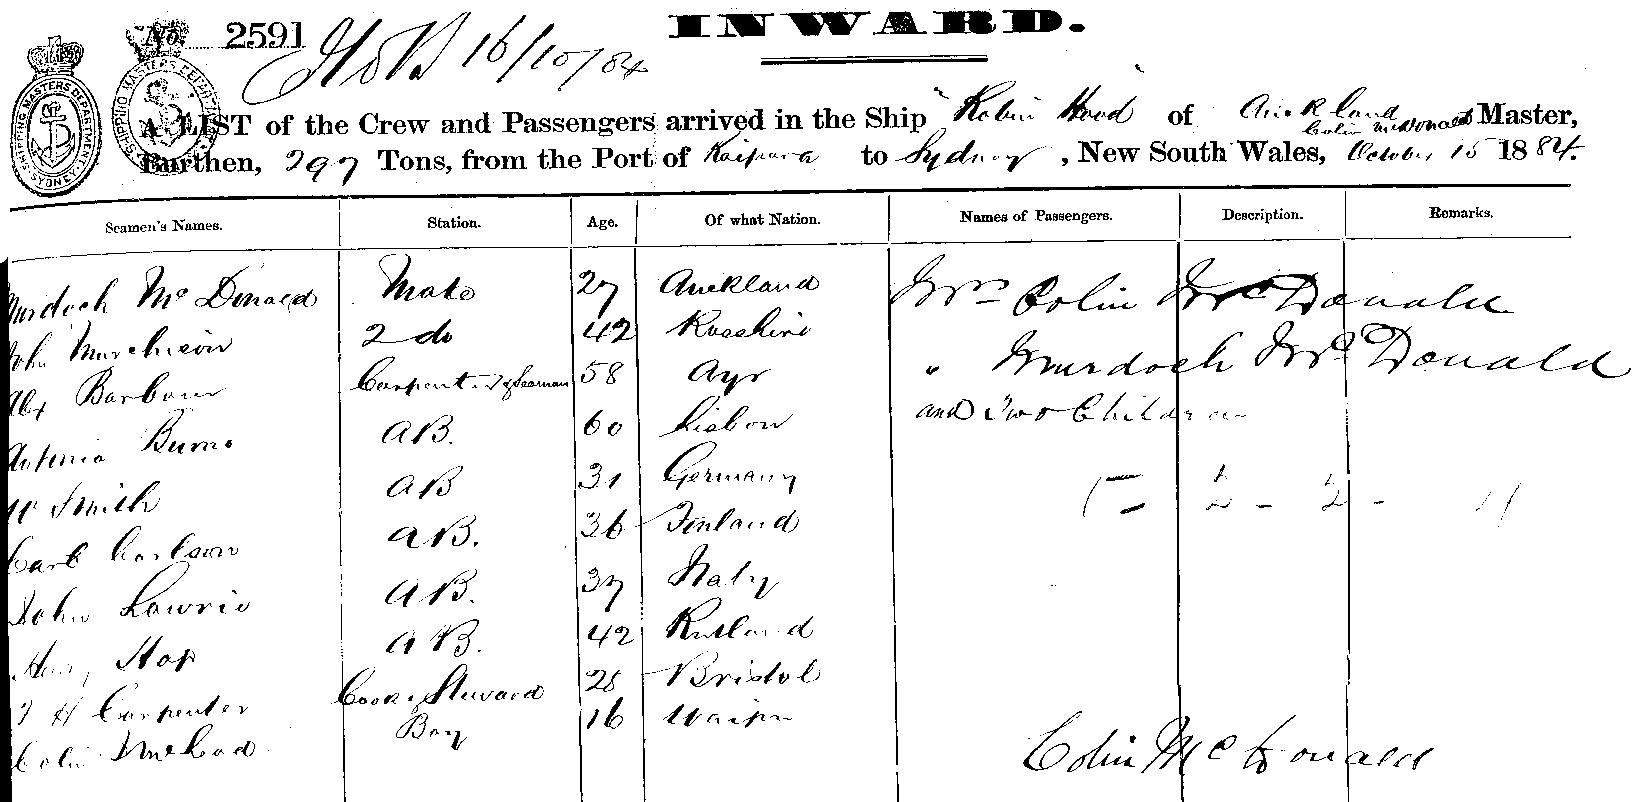 No. 2591
H O B 16/10/84
INWARD.
A LIST of the Crew and Passengers arrived in the Ship "Robin Hood" of Auckland Colin McDonald Master,
Burthen, 297 Tons, from the Port of Kaipara to Sydney, New South Wales, October 15 1884.
Seamen's Names. Station. Age. Of what Nation. Names of Passengers. Description. Remarks.
Murdoch McDonald Mate 27 Auckland Mrs Colin McDonald
John Murchison 2 do 42 Rosshire " Murdoch McDonald
Alex Barbour Carpenter & Seaman 58 Ayr and Two Children
Antonia Burns AB. 60 Lisbon
W Smith AB 31 Germany
Carl Carlson AB. 36 Finland
John Lowrie AB. 37 Italy
Hop AB. 42 Rutland
J H Carpenter Cook & Steward 28 Bristol
Colin McLeod Boy 16 Waipu
Colin McDonald